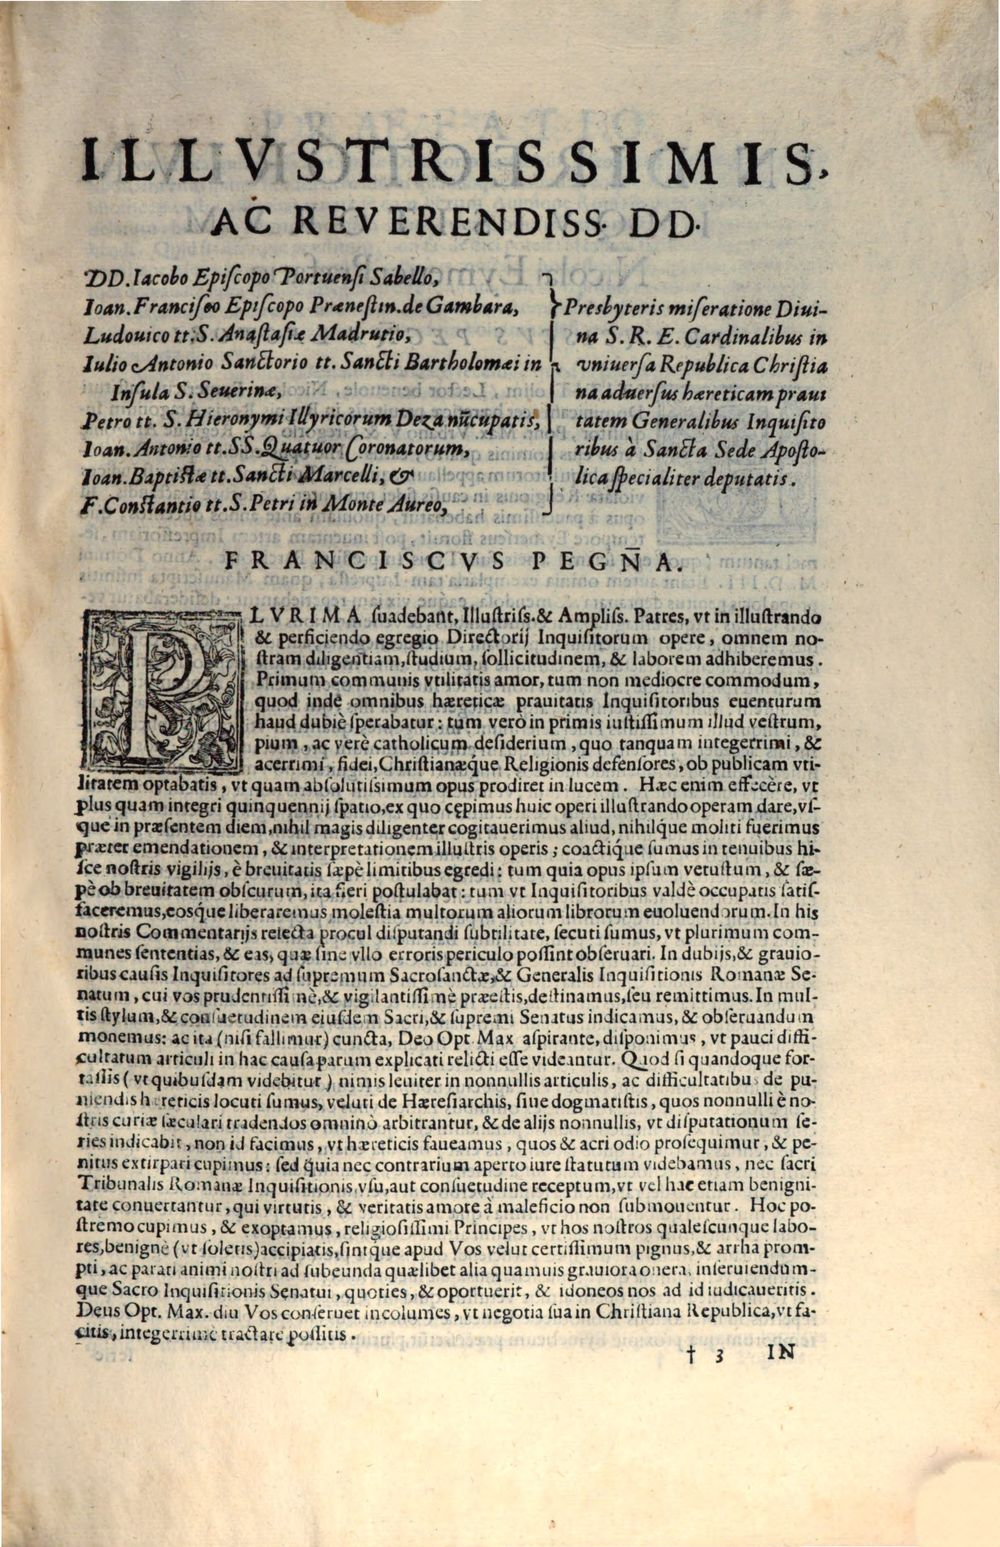 ILLVSTRISSIMIS,
AC REVERENDISS. DD.
DD. Iacobo Episcopo Portuensi Sabello,
Ioan. Francisco Episcopo Prænestin. de Gambara,
Ludouico tt. S. Anastasiæ Madrutio,
Iulio Antonio Sanctorio tt. Sancti Bartholomæi in
Insula S. Seuerinæ,
Petro tt. S. Hieronymi Illyricorum Deza nũcupatis,
Ioan. Antonio tt. SS. Quatuor Coronatorum,
Ioan. Baptistæ tt. Sancti Marcelli, &
F. Constantio tt. S. Petri in Monte Aureo,
Presbyteris miseratione Diui-
na S. R. E. Cardinalibus in
vniuersa Republica Christia
na aduersus hæreticam praui
tatem Generalibus Inquisito
ribus à Sancta Sede Aposto-
lica specialiter deputatis.
FRANCISCVS PEGÑA.
PLVRIMA suadebant, Illustriss. & Ampliss. Patres, vt in illustrando
& perficiendo egregio Directorij Inquisitorum opere, omnem no-
stram diligentiam, studium, sollicitudinem, & laborem adhiberemus.
Primum communis vtilitatis amor, tum non mediocre commodum,
quod inde omnibus hæreticæ prauitatis Inquisitoribus euenturum
haud dubiè sperabatur: tum verò in primis iustissimum illud vestrum,
pium, ac verè catholicum desiderium, quo tanquam integerrimi, &
acerrimi, fidei, Christianæque Religionis defensores, ob publicam vti-
litatem optabatis, vt quam absolutissimum opus prodiret in lucem. Hæc enim effecère, vt
plus quam integri quinquennij spatio, ex quo cępimus huic operi illustrando operam dare, vs-
que in præsentem diem, nihil magis diligenter cogitauerimus aliud, nihilque moliti fuerimus
præter emendationem, & interpretationem illustris operis; coactique sumus in tenuibus hi-
sce nostris vigilijs, è breuitatis sæpè limitibus egredi: tum quia opus ipsum vetustum, & sæ-
pè ob breuitatem obscurum, ita fieri postulabat: tum vt Inquisitoribus valdè occupatis satis-
faceremus, eosque liberaremus molestia multorum aliorum librorum euoluendorum. In his
nostris Commentarijs reiecta procul disputandi subtilitate, secuti sumus, vt plurimum com-
munes sententias, & eas, quæ sine vllo erroris periculo possint obseruari. In dubijs, & grauio-
ribus causis Inquisitores ad supremum Sacrosanctæ, & Generalis Inquisitionis Romanæ Se-
natum, cui vos prudentissimè, & vigilantissimè præestis, destinamus, seu remittimus. In mul-
tis stylum, & consuetudinem eiusdem Sacri, & supremi Senatus indicamus, & obseruandum
monemus: ac ita (nisi fallimur) cuncta, Deo Opt. Max aspirante, disponimus, vt pauci diffi-
cultatum articuli in hac causa parum explicati relicti esse videantur. Quod si quandoque for-
tassis (vt quibusdam videbitur) nimis leuiter in nonnullis articulis, ac difficultatibus de pu-
niendis hæreticis locuti sumus, veluti de Hæresiarchis, siue dogmatistis, quos nonnulli è no-
stris curiæ sæculari tradendos omninò arbitrantur, & de alijs nonnullis, vt disputationum se-
ries indicabit, non id facimus, vt hæreticis faueamus, quos & acri odio prosequimur, & pe-
nitus extirpari cupimus: sed quia nec contrarium aperto iure statutum videbamus, nec sacri
Tribunalis Romanæ Inquisitionis vsu, aut consuetudine receptum, vt vel hac etiam benigni-
tate conuertantur, qui virtutis, & veritatis amore à maleficio non submouentur. Hoc po-
stremo cupimus, & exoptamus, religiosissimi Principes, vt hos nostros qualescunque labo-
res, benignè (vt soletis) accipiatis, sintque apud Vos velut certissimum pignus, & arrha prom-
pti, ac parati animi nostri ad subeunda quælibet alia quamuis grauiora onera, inseruiendum-
que Sacro Inquisitionis Senatui, quoties, & oportuerit, & idoneos nos ad id iudicaueritis.
Deus Opt. Max. diu Vos conseruet incolumes, vt negotia sua in Christiana Republica, vt fa-
citis, integerrimè tractare possitis.
† 3 IN